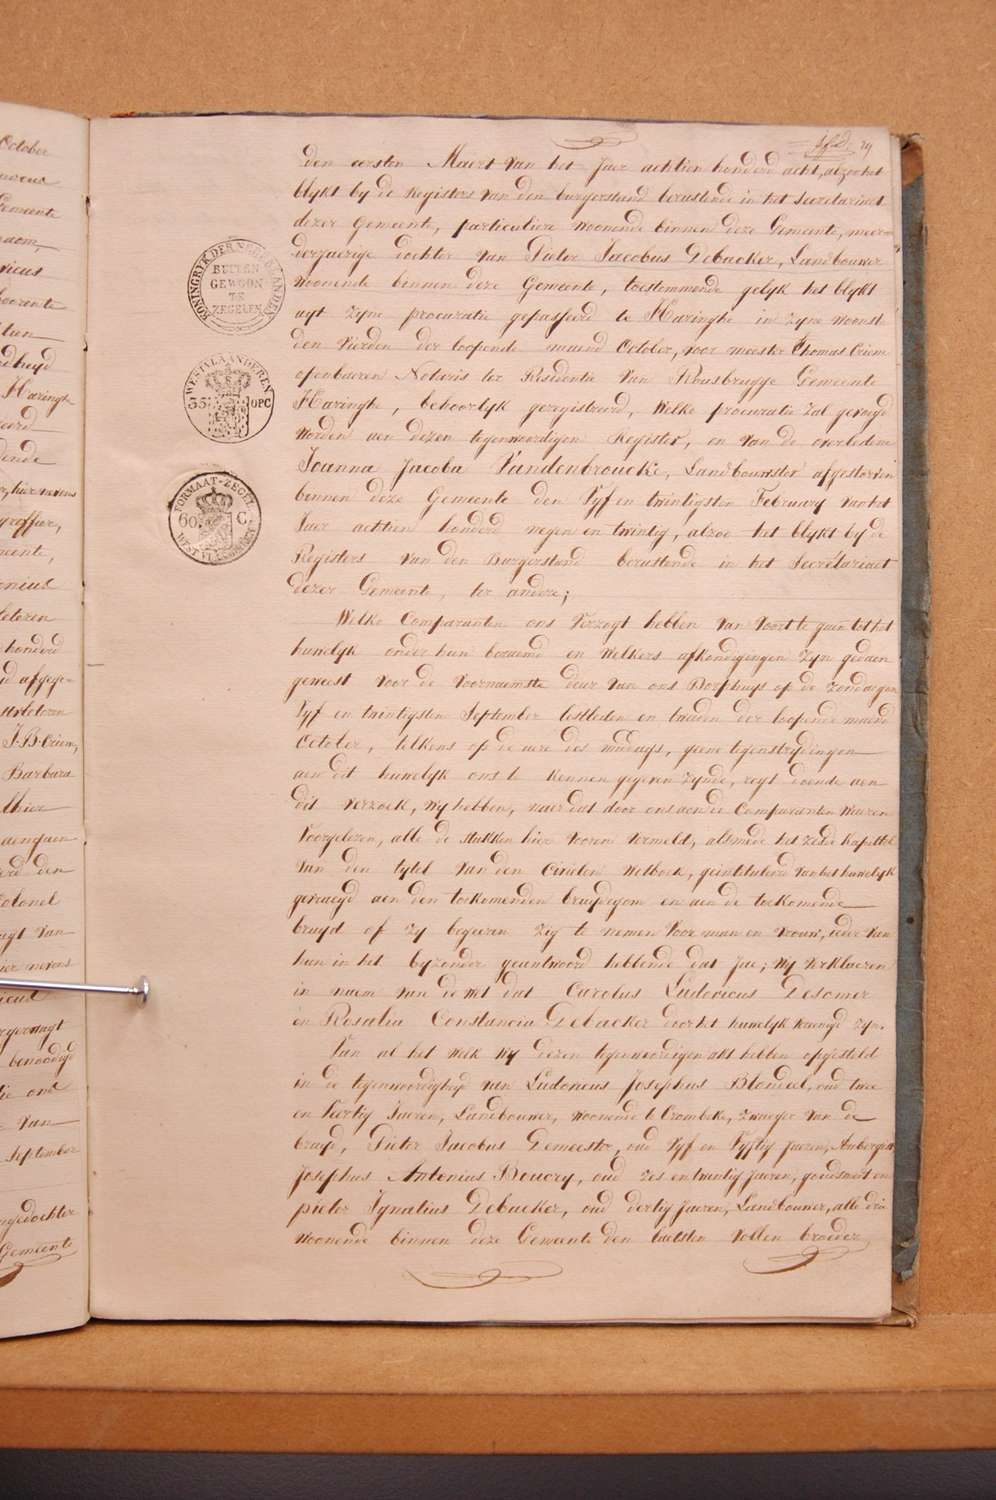 October
Gemeente
vicus
Haringhe
dende
hier nevens
griffier,
meente,
honderd
J. B. Criem,
Barbara
aengaen
Colonel
van
hier nevens
benoodigd
van
September
Gemeente
KONINGRYK DER NEDERLANDEN
BUITEN
GEWOON
TE
ZEGELEN
WESTVLAANDEREN
35 OPC
FORMAAT-ZEGEL
60 C.
WESTVLAANDEREN
29
den eersten Maert van het Jaer achtien honderd acht, alzoo het
blykt by de Registers van den burgerstand berustende in het Secretariaet
dezer Gemeente, particuliere woonende binnen deze Gemeente, meer-
derjaerige dochter van Pieter Jacobus Debacker, Landbouwer
woonende binnen deze Gemeente, toestemmende gelyk het blykt
uyt zyne procuratie gepasseerd te Haringhe in zyne woonst
den vierden der loopende maend October, voor meester Thomas Criem
openbaeren Notaris ter Residentie van Rousbrugge Gemeente
Haringhe, behoorlyk geregistreerd, welke procuratie zal gevoegd
worden aen dezen tegenwoordigen Register, en van de overledene
Joanna Jacoba Vandenbroucke, Landbouwster afgestorven
binnen deze Gemeente den vyf en twintigsten February van het
Jaer achtien honderd negen en twintig, alzoo het blykt by de
Registers van den Burgerstand berustende in het Secretariaet
dezer Gemeente, ter andere;
Welke Comparanten ons verzogt hebben van voort te gaen tot het
huwelyk onder hun beraemd en welkers afkondigingen zyn gedaen
geweest voor de voornaemste deur van ons Dorphuys op de zondagen
vyf en twintigsten September lestleden en tweeden der loopende maend
October, telkens op de uere des middags, geene tegenstrydingen
aen dit huwelyk ons te kennen gegeven zynde, regt doende aen
dit verzoek, wy hebben, naer dat door ons aen de Comparanten waeren
voorgelezen, alle de stukken hier voren vermeld, alsmede het zesde kapittel
van den tytel van den Civielen Wetboek, geintituleerd van het huwelyk
gevraegd aen den toekomenden bruydegom en aen de toekomende
bruyd of zy begeeren zig te nemen voor man en vrouw, ieder van
hun in het byzonder geantwoord hebbende dat Jae; wy verklaeren
in naem van de wet dat Carolus Ludovicus Desomer
en Rosalia Constancia Debacker door het huwelyk vereenigd zyn.
Van al het welk wy dezen tegenwoordigen akt hebben opgesteld
in de tegenwoordigheyd van Ludovicus Josephus Blondeel, oud twee
en veertig Jaeren, Landbouwer, woonende te Crombeke, zwaeger van de
bruyd, Pieter Jacobus Gemeester, oud vyf en vyftig Jaeren, Aubergist
Josephus Antonius Boucry, oud zes en twintig Jaeren, goudsmet en
pieter Ignatius Debacker, oud dertig Jaeren, Landbouwer, alle drie
woonende binnen deze Gemeente den laetsten vollen broeder